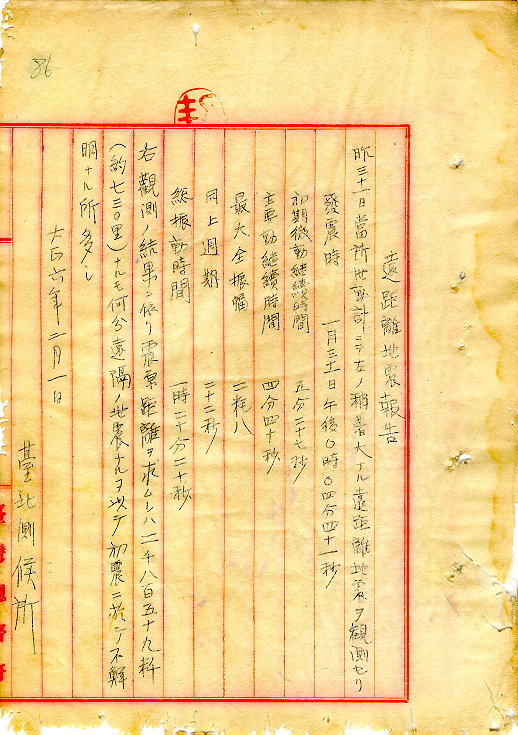 86
遠距離地震報告
昨三十一日當所地動計ニテ左ノ稍著大ナル遠距離地震ヲ観測セリ
發震時　一月三十一日午後0時0四分四十一秒
初期微動継続時間　五分二十七秒
主要動継続時間　四分四十秒
最大全振幅　二粍八
同上週期　二十二秒
総振動時間　一時二十分二十秒
右觀測ノ結果ニ依リ震原距離ヲ求ムレハ二千八百五十九粁
(約七三0里)ナルモ何分遠隔ノ地震ナルヲ以テ初震ニ於テ不鮮
明ナル所多シ
大正六年二月一日
臺北測候所